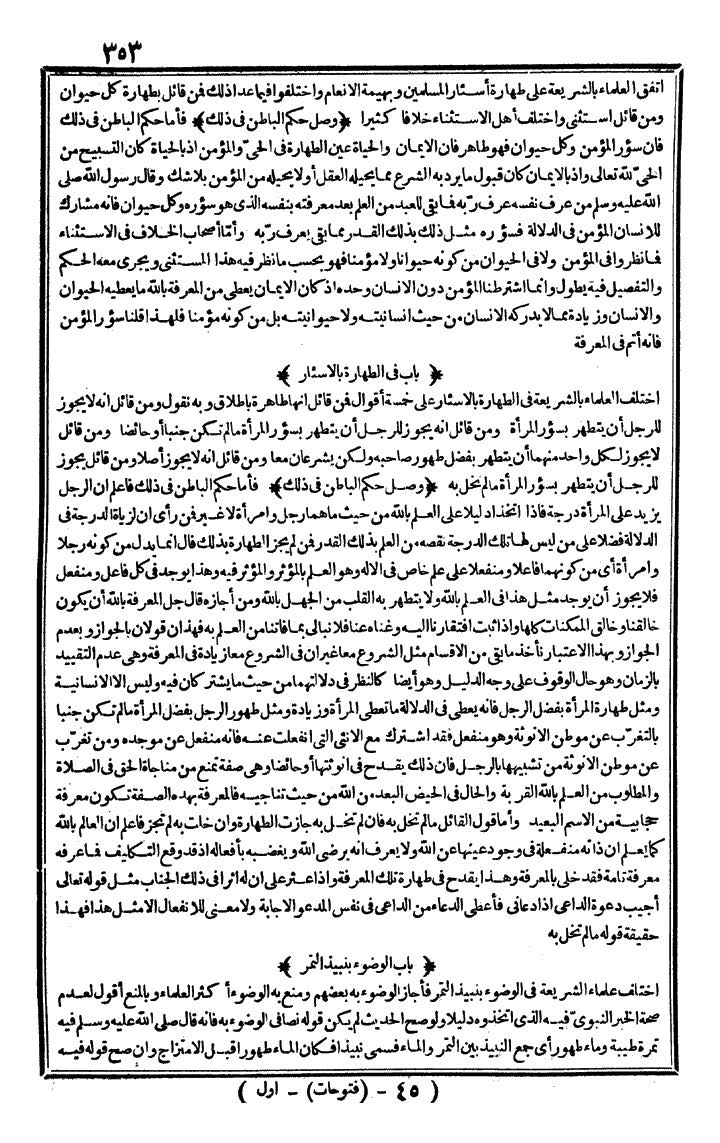 ٣٥٣
اتفق العلماء بالشريعة على طهارة أسئار المسلمين وبهيمة الانعام واختلفوا فيما عدا ذلك فمن قائل بطهارة كل حيوان
ومن قائل استثنى واختلف أهل الاستثناء خلافا كثيرا ﴿وصل حكم الباطن فى ذلك﴾ فأما حكم الباطن فى ذلك
فان سؤر المؤمن وكل حيوان فهو طاهر فان الايمان والحياة عين الطهارة فى الحىّ والمؤمن اذ بالحياة كان التسبيح من
الحىّ لله تعالى واذ بالايمان كان قبول ما يرد به الشرع مما يحيله العقل أولا يحيله من المؤمن بلا شك وقال رسول الله صلى
الله عليه وسلم من عرف نفسه عرف ربه فما بقى للعبد من العلم بعد معرفته بنفسه الذى هو سؤره وكل حيوان فانه مشارك
للانسان المؤمن فى الدلالة فسؤره مثل ذلك بذلك القدر مما بقى يعرف ربه وأمّا أصحاب الخلاف فى الاستثناء
فما نظروا فى المؤمن ولا فى الحيوان من كونه حيوانا ولا مؤمنا فهو بحسب ما نظر فيه هذا المستثنى ويجرى معه الحكم
والتفصيل فيه يطول وانما اشترطنا المؤمن دون الانسان وحده اذ كان الايمان يعطى من المعرفة بالله ما يعطيه الحيوان
والانسان وزيادة مما لا يدركه الانسان من حيث انسانيته ولا حيوانيته بل من كونه مؤمنا فلهذا قلنا سؤر المؤمن
فانه أتم فى المعرفة
﴿ باب فى الطهارة بالاسئار ﴾
اختلف العلماء بالشريعة فى الطهارة بالاسئار على خمسة أقوال فمن قائل انها طاهرة باطلاق وبه نقول ومن قائل انه لا يجوز
للرجل أن يتطهر بسؤر المرأة ومن قائل انه يجوز للرجل أن يتطهر بسؤر المرأة ما لم تكن جنبا أو حائضا ومن قائل
لا يجوز لكل واحد منهما أن يتطهر بفضل طهور صاحبه ولكن يشرعان معا ومن قائل انه لا يجوز أصلا ومن قائل يجوز
للرجل أن يتطهر بسؤر المرأة ما لم تخل به ﴿وصل حكم الباطن فى ذلك﴾ فأما حكم الباطن فى ذلك فاعلم ان الرجل
يزيد على المرأة درجة فاذا اتخذا دليلا على العلم بالله من حيث ما هما رجل وامرأة لا غير فمن رأى ان لزيادة الدرجة فى
الدلالة فضلا على من ليس لها تلك الدرجة نقصه من العلم بذلك القدر فمن لم يجز الطهارة بذلك قال انما يدل من كونه رجلا
وامرأة أى من كونهما فاعلا ومنفعلا على علم خاص فى الاله وهو العلم بالمؤثر والمؤثر فيه وهذا يوجد فى كل فاعل ومنفعل
فلا يجوز أن يوجد مثل هذا فى العلم بالله ولا يتطهر به القلب من الجهل بالله ومن أجازه قال جل المعرفة بالله أن يكون
خالقنا وخالق الممكنات كلها واذا ثبت افتقارنا اليه وغناه عنا فلا نبالى بما فاتنا من العلم به فهذان قولان بالجواز وبعدم
الجواز وبهذا الاعتبار نأخذ ما بقى من الاقسام مثل الشروع معا غير ان فى الشروع معا زيادة فى المعرفة وهى عدم التقييد
بالزمان وهو حال الوقوف على وجه الدليل وهو أيضا كالنظر فى دلالتهما من حيث ما يشتركان فيه وليس الا الانسانية
ومثل طهارة المرأة بفضل الرجل فانه يعطى فى الدلالة ما تعطى المرأة وزيادة ومثل طهور الرجل بفضل المرأة ما لم تكن جنبا
بالتغرّب عن موطن الانوثة وهو منفعل فقد اشترك مع الانثى التى انفعلت عنه فانه منفعل عن موجده ومن تغرّب
عن موطن الانوثة من تشبيهها بالرجل فان ذلك يقدح فى انوثتها أو حائضا وهى صفة تمنع من مناجاة الحق فى الصلاة
والمطلوب من العلم بالله القربة والحال فى الحيض البعد من الله من حيث تناجيه فالمعرفة بهذه الصفة تكون معرفة
حجابية من الاسم البعيد وأما قول القائل ما لم تخل به فان لم تخل به جازت الطهارة وان خلت به لم تجز فاعلم ان العالم بالله
كما يعلم ان ذاته منفعلة فى وجود عينها عن الله ولا يعرف انه يرضى الله ويغضبه بأفعاله اذ قد وقع التكليف فما عرفه
معرفة تامة فقد خلى بالمعرفة وهذا يقدح فى طهارة تلك المعرفة واذا عثر على ان له اثرا فى ذلك الجناب مثل قوله تعالى
أجيب دعوة الداعى اذا دعانى فأعطى الدعاء من الداعى فى نفس المدعو الاجابة ولا معنى للانفعال الا مثل هذا فهذا
حقيقة قوله ما لم تخل به
﴿ باب الوضوء بنبيذ التمر ﴾
اختلف علماء الشريعة فى الوضوء بنبيذ التمر فأجاز الوضوء به بعضهم ومنع به الوضوء أكثر العلماء وبالمنع أقول لعدم
صحة الخبر النبوىّ فيه الذى اتخذوه دليلا ولو صح الحديث لم يكن قوله نصا فى الوضوء به فانه قال صلى الله عليه وسلم فيه
تمرة طيبة وماء طهور أى جمع النبيذ بين التمر والماء فسمى نبيذا فكان الماء طهورا قبل الامتزاج وان صح قوله فيه
( ٤٥ - (فتوحات) - اول )